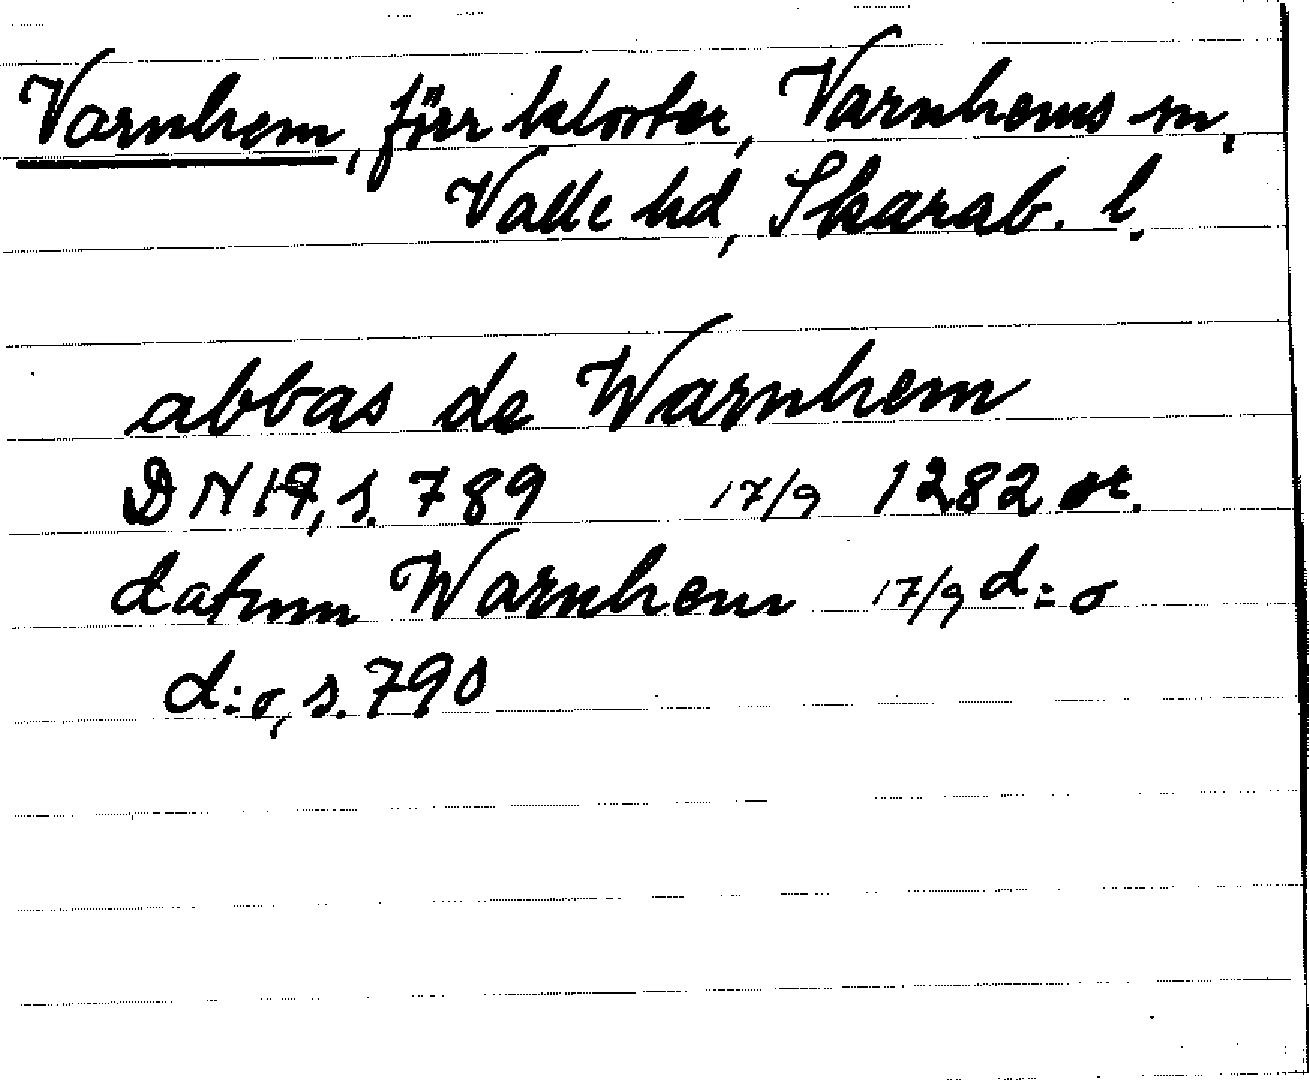 Varnhem, förr kloster, Varnhems sn,
Valle hd, Skarab. l.
abbas de Warnhem
DN 17, s. 789 17/9 1282 or.
datum Warnhem 17/9 d:o
d:o, s. 790